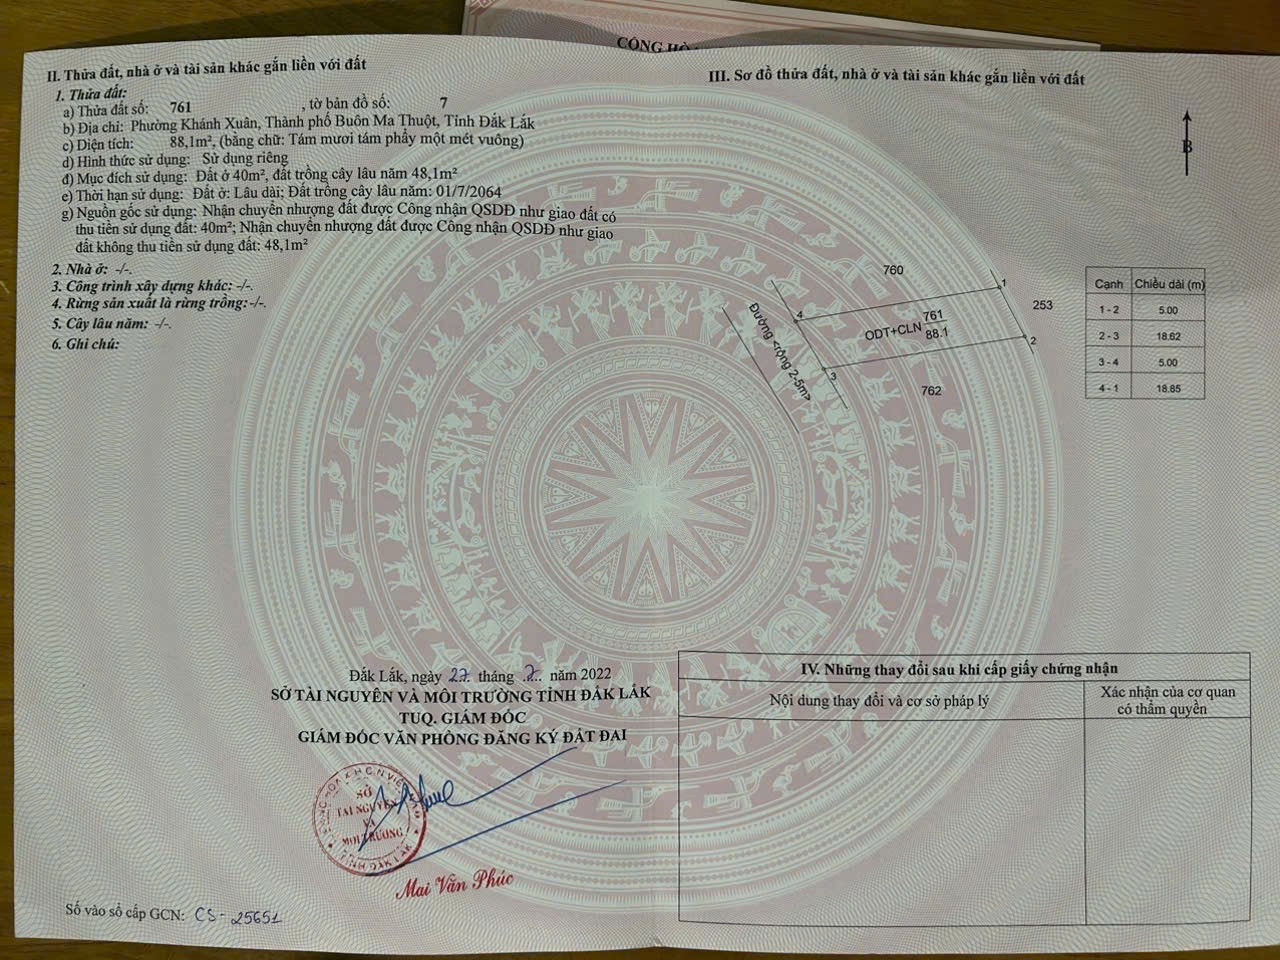 CÔNG HÒA
II. Thửa đất, nhà ở và tài sản khác gắn liền với đất
1. Thửa đất:
a) Thửa đất số: 761 , tờ bản đồ số: 7
b) Địa chỉ: Phường Khánh Xuân, Thành phố Buôn Ma Thuột, Tỉnh Đắk Lắk
c) Diện tích: 88,1m², (bằng chữ: Tám mươi tám phẩy một mét vuông)
d) Hình thức sử dụng: Sử dụng riêng
đ) Mục đích sử dụng: Đất ở 40m², đất trồng cây lâu năm 48,1m²
e) Thời hạn sử dụng: Đất ở: Lâu dài; Đất trồng cây lâu năm: 01/7/2064
g) Nguồn gốc sử dụng: Nhận chuyển nhượng đất được Công nhận QSDĐ như giao đất có
thu tiền sử dụng đất: 40m²; Nhận chuyển nhượng đất được Công nhận QSDĐ như giao
đất không thu tiền sử dụng đất: 48,1m²
2. Nhà ở: -/-.
3. Công trình xây dựng khác: -/-.
4. Rừng sản xuất là rừng trồng: -/-.
5. Cây lâu năm: -/-.
6. Ghi chú:
Đắk Lắk, ngày 27 tháng 7 năm 2022
SỞ TÀI NGUYÊN VÀ MÔI TRƯỜNG TỈNH ĐẮK LẮK
TUQ. GIÁM ĐỐC
GIÁM ĐỐC VĂN PHÒNG ĐĂNG KÝ ĐẤT ĐAI
SỞ
TÀI NGUYÊN
VÀ
MÔI TRƯỜNG
TỈNH ĐẮK LẮK
Mai Văn Phúc
Số vào sổ cấp GCN: CS - 25651
III. Sơ đồ thửa đất, nhà ở và tài sản khác gắn liền với đất
B
760
1
253
4
761
ODT+CLN 88.1
2
3
762
Đường <rộng 2-5m>
Cạnh Chiều dài (m)
1 - 2 5.00
2 - 3 18.62
3 - 4 5.00
4 - 1 18.65
IV. Những thay đổi sau khi cấp giấy chứng nhận
Nội dung thay đổi và cơ sở pháp lý
Xác nhận của cơ quan
có thẩm quyền